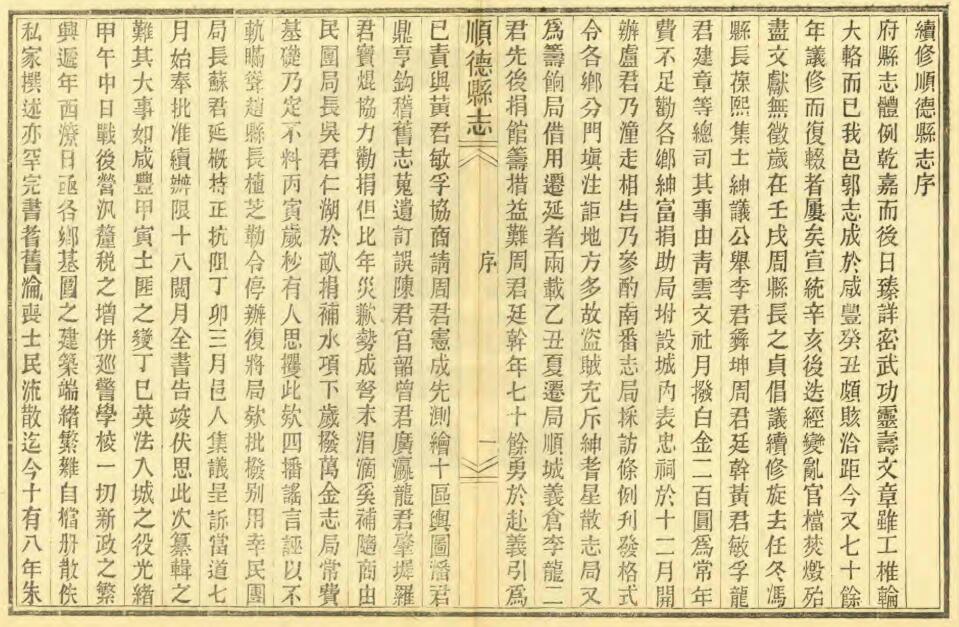 續修順德縣志序
府縣志體例乾嘉而後日臻詳密武功靈壽文章雖工椎輪
大輅而已我邑郭志成於咸豐癸丑頗賅洽距今又七十餘
年議修而復輟者屢矣宣統辛亥後迭經變亂官檔焚燬殆
盡文獻無徵歲在壬戌周縣長之貞倡議續修旋去任冬馮
縣長葆熙集士紳議公舉李君彝坤周君廷幹黃君敏孚龍
君建章等總司其事由青雲文社月撥白金二百圓爲常年
費不足勸各鄉紳富捐助局坿設城內表忠祠於十二月開
辦盧君乃潼走相告乃參酌南番志局採訪條例刋發格式
令各鄉分門塡注詎地方多故盜賊充斥紳耆星散志局又
爲籌餉局借用遷延者兩載乙丑夏遷局順城義倉李龍二
君先後捐館籌措益難周君廷幹年七十餘勇於赴義引爲
順德縣志
序
一
已責與黃君敏孚協商請周君憲成先測繪十區輿圖潘君
鼎亨鈎稽舊志蒐遺訂誤陳君官韶曾君廣瀛龍君肇墀羅
君寶焜協力勸捐但比年災歉勢成弩末涓滴奚補隨商由
民團局長吳君仁湖於畝捐補水項下歲撥萬金志局常費
基礎乃定不料丙寅歲杪有人思攫此欵四播謠言誣以不
軌瞞聳趙縣長植芝勒令停辦復將局欵批撥別用幸民團
局長蘇君延概持正抗阻丁卯三月邑人集議呈訴當道七
月始奉批准續辦限十八閱月全書告竣伏思此次纂輯之
難其大事如咸豐甲寅土匪之變丁巳英法入城之役光緒
甲午中日戰後營汛釐税之增併巡警學校一切新政之繁
興遞年西潦日亟各鄉基圍之建築端緒繁雜自檔册散佚
私家撰述亦罕完書耆舊淪喪士民流散迄今十有八年朱